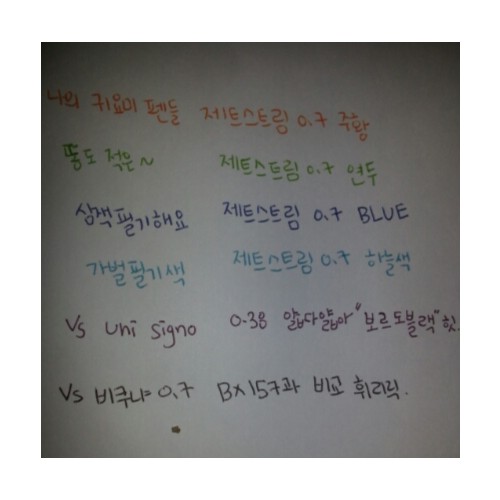 나의 귀요미 펜들 제트스트림 0.7 주황
똥도 적은~ 제트스트림 0.7 연두
삼색필기해요 제트스트림 0.7 BLUE
가벌필기색 제트스트림 0.7 하늘색
Vs uni signo 0.38 얇다얇아 "보르도블랙" 힛.
Vs 비쿠냐 0.7 BX157과 비교 휘리릭.